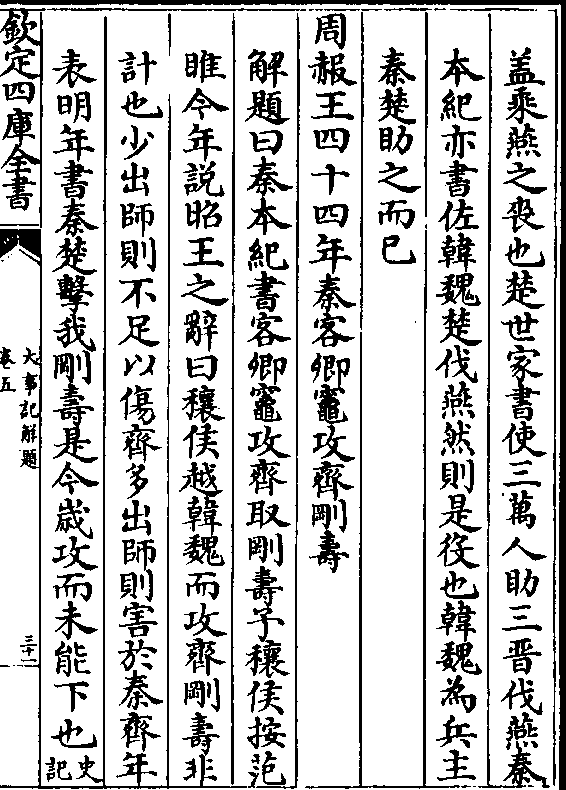 盖乘燕之喪也楚世家書使三萬人助三晋伐燕秦
本紀亦書佐韓魏楚伐燕然則是役也韓魏為兵主
秦楚助之而已
周赧王四十四年秦客卿竈攻齊剛壽
解題曰秦本紀書客卿竈攻齊取剛壽予穰侯按范
睢今年説昭王之辭曰穰侯越韓魏而攻齊剛壽非
計也少出師則不足以傷齊多出師則害於秦齊年
表明年書秦楚擊我剛壽是今歲攻而未能下也史記
欽定四庫全書
大事記解題
卷五
三十二